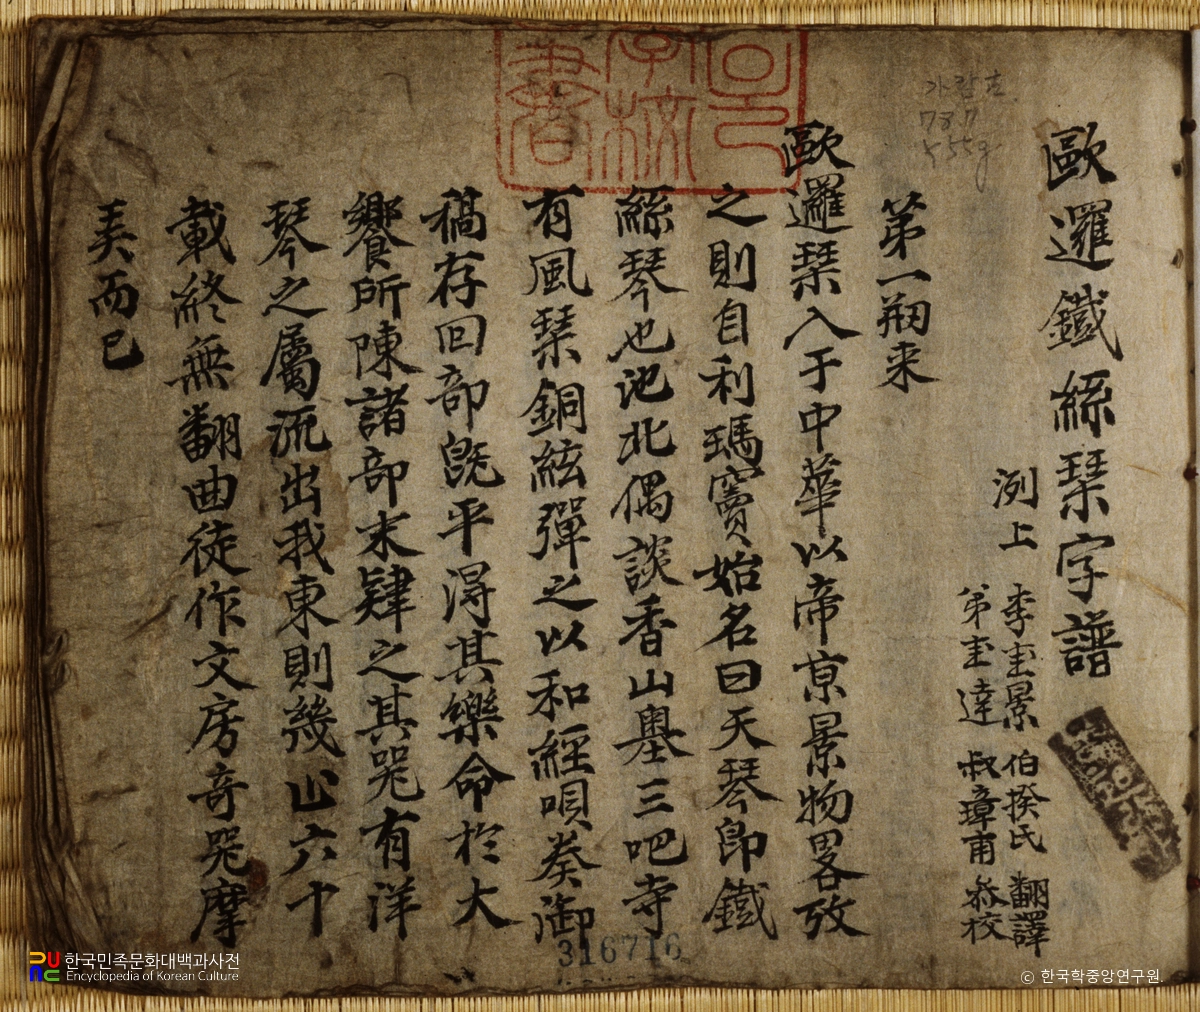 歐邏鐵絲琹字譜
洌上
李圭景 伯揆氏 翻譯
弟圭達 叔璋甫 叅校
第一刱来
歐邏琹入于中華以帝亰景物畧攷
之則自利瑪竇始名曰天琴卽鐵
絲琴也池北偶談香山墺三吧寺
有風琹銅絃彈之以和經唄奏御
稿存回部旣平淂其樂命於大
饗所陳諸部末肄之其器有洋
琴之屬流出我東則幾止六十
載終無翻曲徒作文房奇器摩
美而已
가람古
787
316716
한국민족문화대백과사전
Encyclopedia of Korean Culture
ⓒ 한국학중앙연구원.